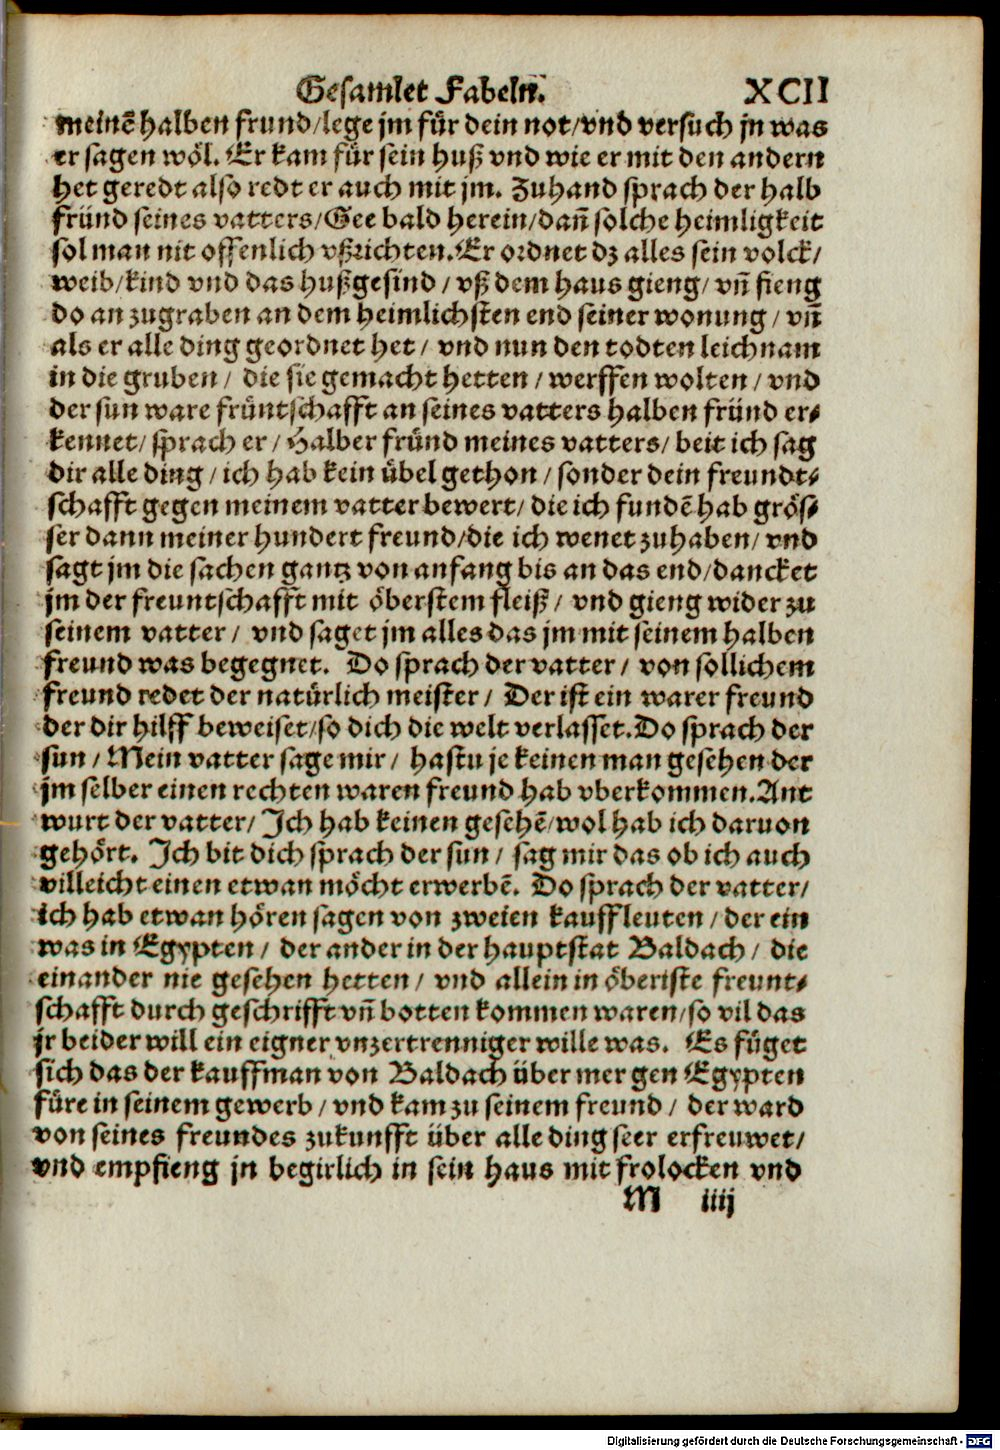 Gesamlet Fabeln. XCII
meinẽ halben frund/lege jm für dein not/vnd versuch jn was
er sagen wöl. Er kam für sein huß vnd wie er mit den andern
het geredt also redt er auch mit jm. Zuhand sprach der halb
fründ seines vatters/Gee bald herein/dañ solche heimligkeit
sol man nit offenlich vßrichten. Er ordnet dz alles sein volck/
weib/kind vnd das hußgesind/vß dem haus gieng/vñ fieng
do an zugraben an dem heimlichsten end seiner wonung/vñ
als er alle ding geordnet het/vnd nun den todten leichnam
in die gruben/die sie gemacht hetten/werffen wolten/vnd
der sun ware früntschafft an seines vatters halben fründ er⸗
kennet/sprach er/Halber fründ meines vatters/beit ich sag
dir alle ding/ich hab kein übel gethon/sonder dein freundt⸗
schafft gegen meinem vatter bewert/die ich fundẽ hab grös⸗
ser dann meiner hundert freund/die ich wenet zuhaben/vnd
sagt jm die sachen gantz von anfang bis an das end/dancket
jm der freuntschafft mit öberstem fleiß/vnd gieng wider zu
seinem vatter/vnd saget jm alles das jm mit seinem halben
freund was begegnet. Do sprach der vatter/von sollichem
freund redet der natürlich meister/Der ist ein warer freund
der dir hilff beweiset/so dich die welt verlasset. Do sprach der
sun/Mein vatter sage mir/hastu je keinen man gesehen der
jm selber einen rechten waren freund hab vberkommen. Ant
wurt der vatter/Ich hab keinen gesehẽ/wol hab ich daruon
gehört. Ich bit dich sprach der sun/sag mir das ob ich auch
villeicht einen etwan möcht erwerbẽ. Do sprach der vatter/
ich hab etwan hören sagen von zweien kauffleuten/der ein
was in Egypten/der ander in der hauptstat Baldach/die
einander nie gesehen hetten/vnd allein in öberiste freunt⸗
schafft durch geschrifft vñ botten kommen waren/so vil das
jr beider will ein eigner vnzertrenniger wille was. Es füget
sich das der kauffman von Baldach über mer gen Egypten
füre in seinem gewerb/vnd kam zu seinem freund/der ward
von seines freundes zukunfft über alle ding seer erfreuwet/
vnd empfieng jn begirlich in sein haus mit frolocken vnd
M iiij
Digitalisierung gefördert durch die Deutsche Forschungsgemeinschaft - DFG